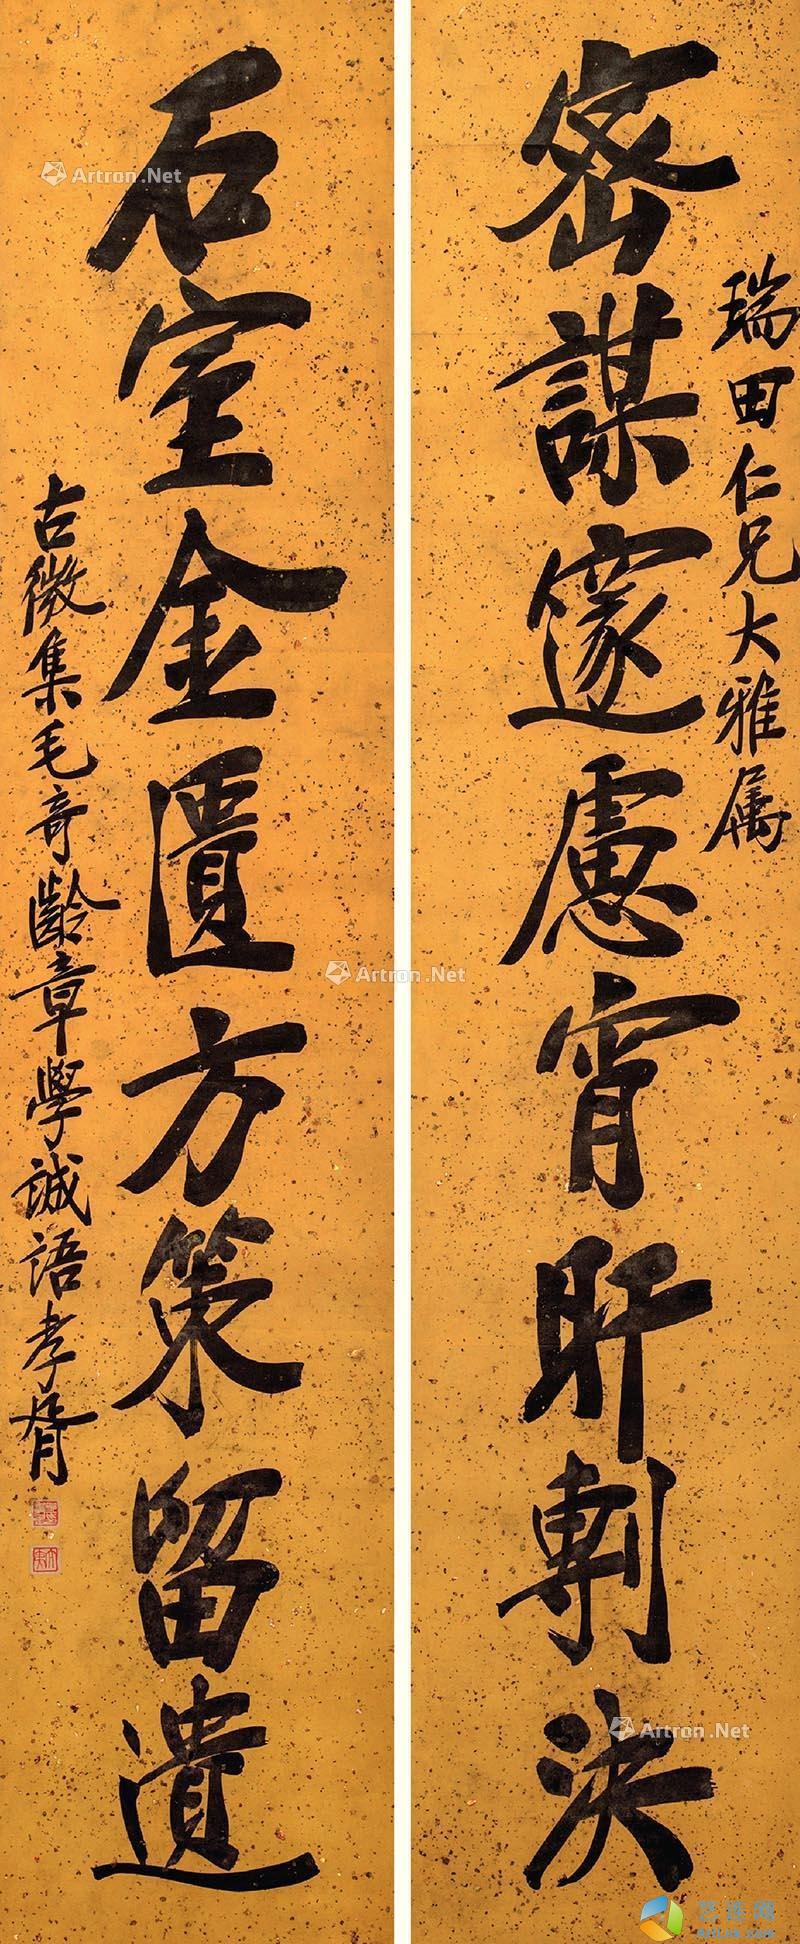 瑞田仁兄大雅属
密謀邃慮宵旰剸決
石室金匱方策留遺
古微集毛奇齡章學誠語孝胥
Artron.Net
Artron.Net
Artron.Net